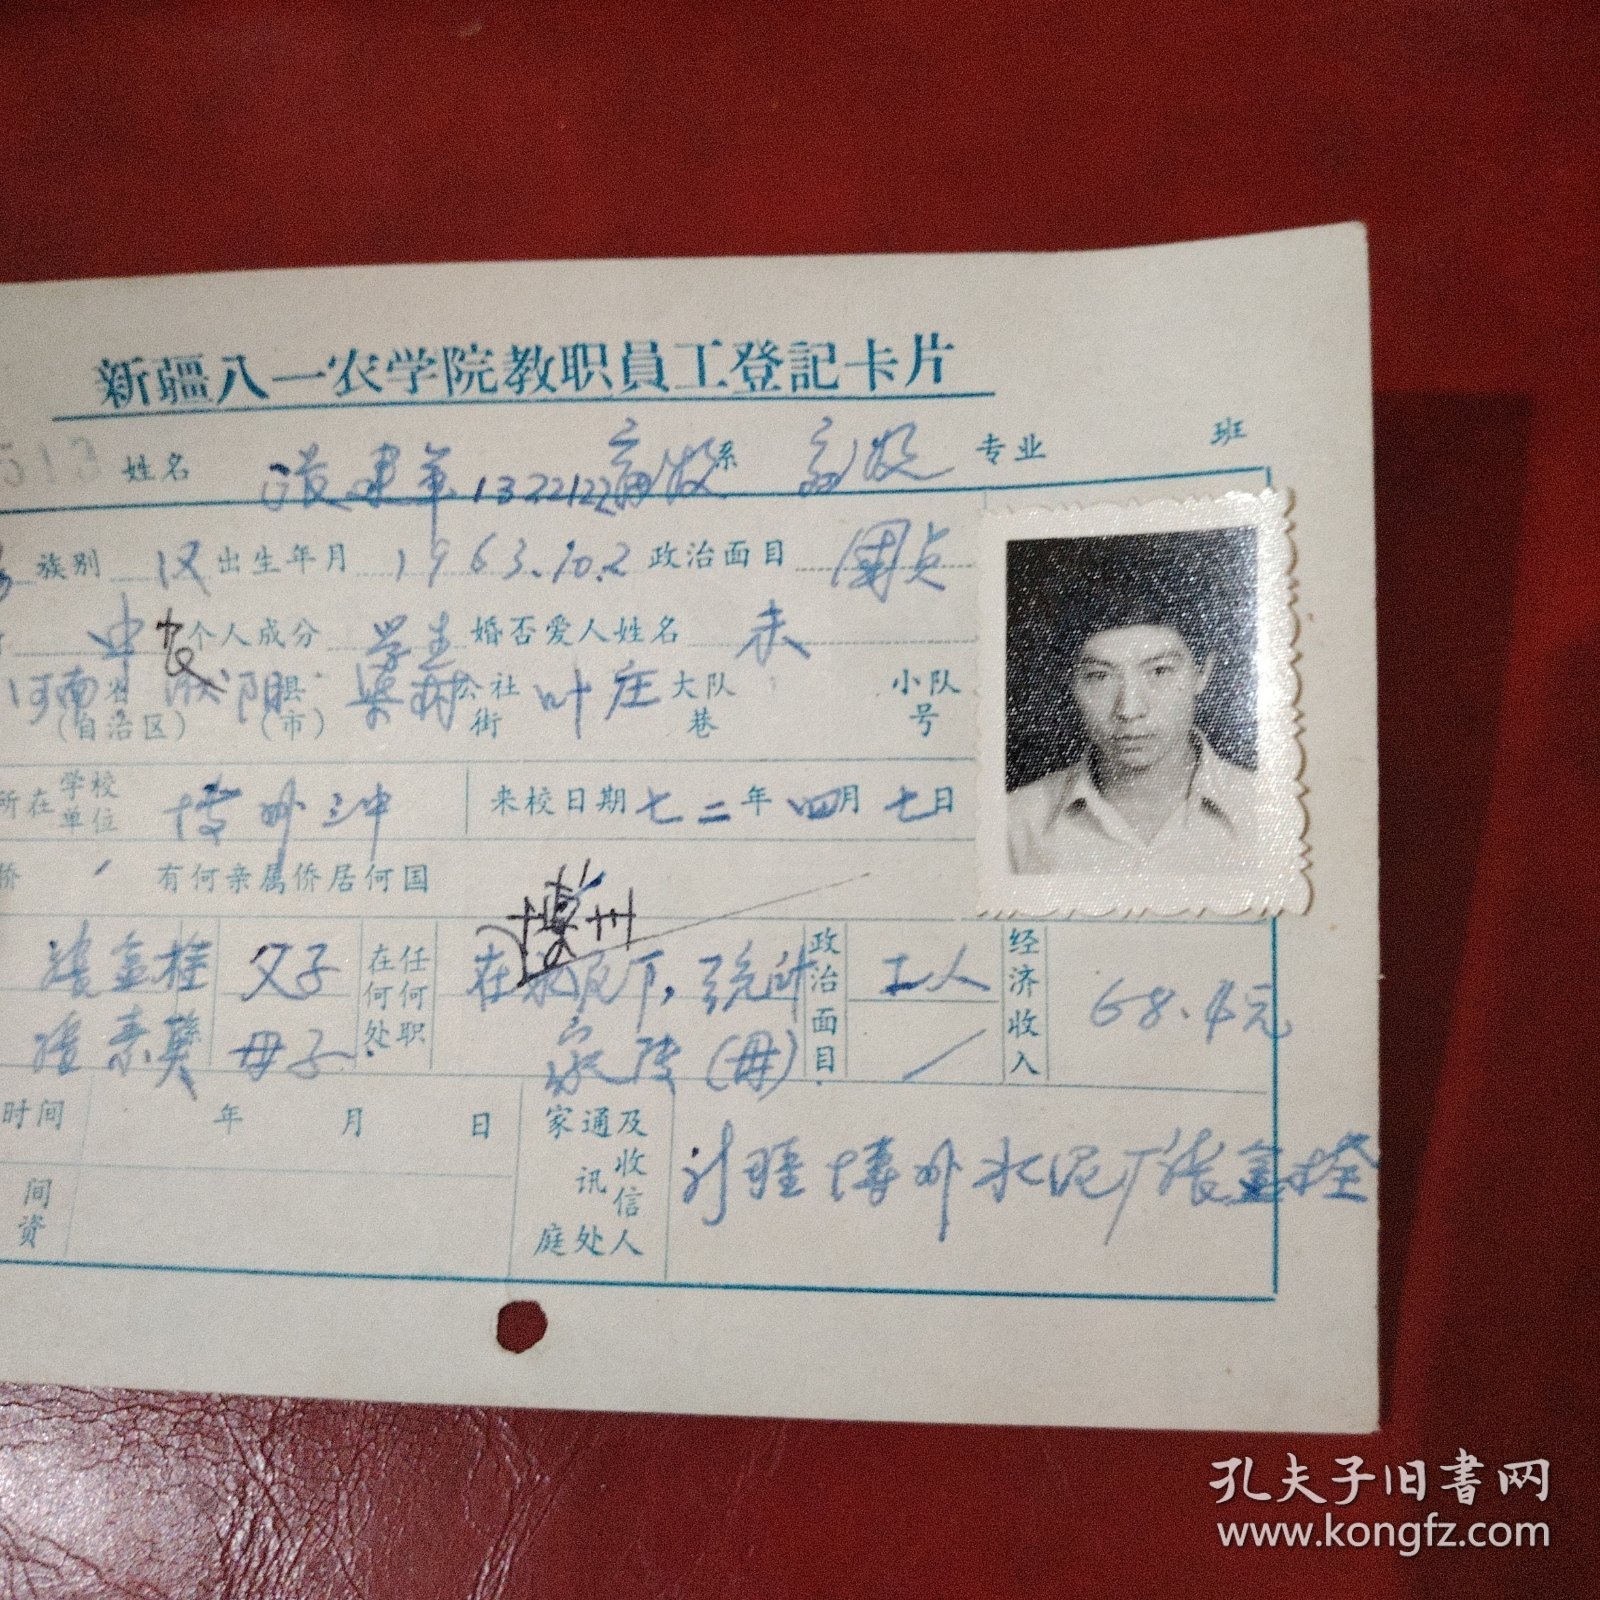 新疆八一农学院教职員工登記卡片
513 姓名 张建军 1322122 畜牧 系 畜牧 专业 班
族别 汉 出生年月 1963.10.2 政治面目 团员
中农 个人成分 学生 婚否爱人姓名 未
河南 省(自治区) 阳 县(市) 公社 街 叶庄 大队 巷 小队 号
所在学校单位 博州三中 来校日期 七二年四月七日
侨 有何亲属侨居何国
博州
张金桂 父子 在何处任何职 在水泥厂,统计 政治面目 工人 经济收入 68.4元
母子 家 (母)
时间 年 月 日 家庭通讯处及收信人 新疆博州水泥厂张金桂
间
资
孔夫子旧書网
www.kongfz.com